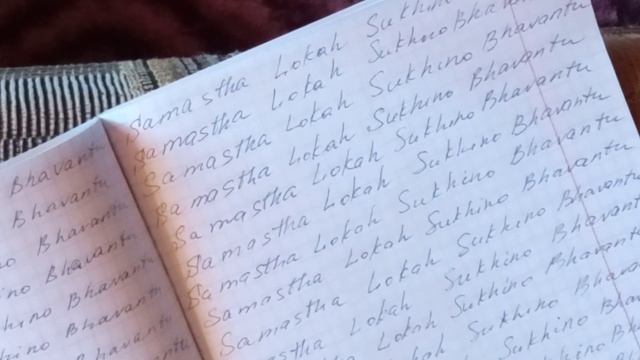 Bhavantu
Bhavantu
Bhavantu
Bhavantu
Bhavantu
Bhavantu
Bhavantu
Samastha Lokah Sukhin
Samastha Lokah Sukhino Bhavan
Samastha Lokah Sukhino Bhavantu
Samastha Lokah Sukhino Bhavantu
Samastha Lokah Sukhino Bhavantu
Samastha Lokah Sukhino Bhavantu
Samastha Lokah Sukhino Bhavantu
Samastha Lokah Sukhino Bhavantu
Samastha Lokah Sukhino Bhavantu
Lokah Sukhino Bhavantu
Lokah Sukhino Bhavantu
Sukhino Bhavan
Sukhino